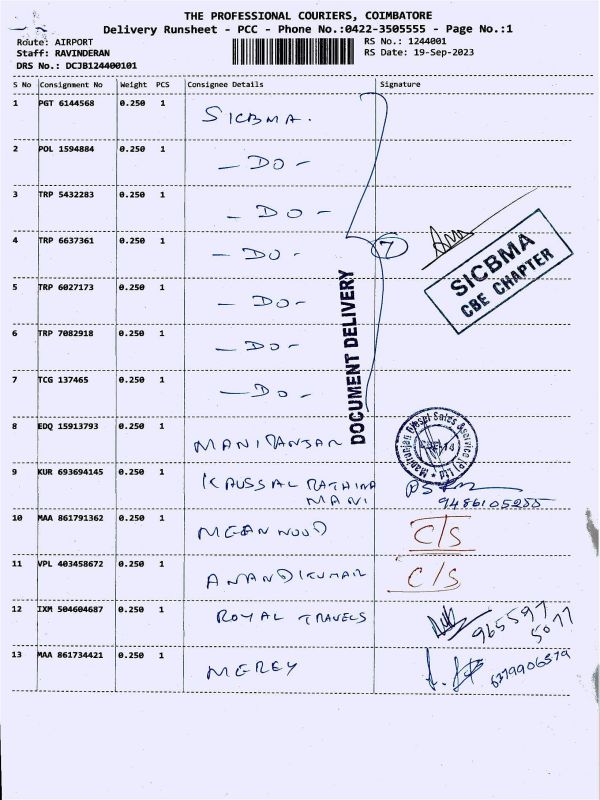 THE PROFESSIONAL COURIERS, COIMBATORE
Delivery Runsheet - PCC - Phone No.:0422-3505555 - Page No.:1
Route: AIRPORT RS No.: 1244001
Staff: RAVINDERAN RS Date: 19-Sep-2023
DRS No.: DCJB124400101
S No Consignment No Weight PCS Consignee Details Signature
1 PGT 6144568 0.250 1 SICBMA.
2 POL 1594884 0.250 1 - DO -
3 TRP 5432283 0.250 1 - DO -
4 TRP 6637361 0.250 1 - DO - 7
SICBMA
CBE CHAPTER
5 TRP 6027173 0.250 1 - DO -
6 TRP 7082918 0.250 1 - DO -
7 TCG 137465 0.250 1 - DO -
DOCUMENT DELIVERY
8 EDQ 15913793 0.250 1 MANIRANJAN
Maniranjan Diesel Sales & Service (P) Ltd
9 KUR 693694145 0.250 1 KAUSSAL RATHINA
MANI
10 MAA 861791362 0.250 1 C/S
11 VPL 403458672 0.250 1 ANANDKUMAR C/S
12 IXM 504604687 0.250 1 ROYAL TRAVELS 965597
5077
13 MAA 861734421 0.250 1 MEREY 6379906579